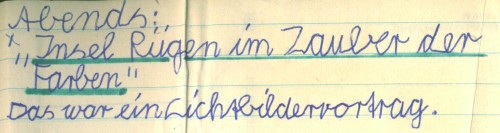 Abends:
"Insel Rügen im Zauber der
Farben."
Das war ein Lichtbildervortrag.